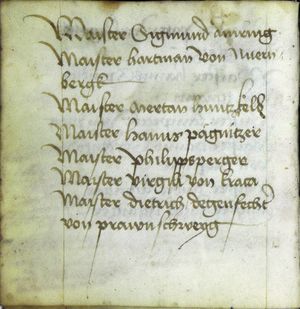 Maister Sigmund amring
Maister hartman von Nurn
bergk
Maister mertan huntzfeld
Maister hanns pägnitzer
Maister philippsperger
Maister virgili von kraca
Maister dietrich degenfecht
von prawnschweyg